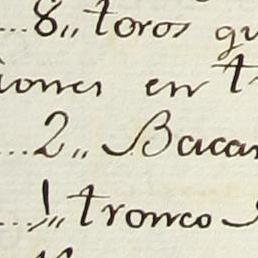 ...8,, toros
iones en
...2,, Bacas
...1,, tronco